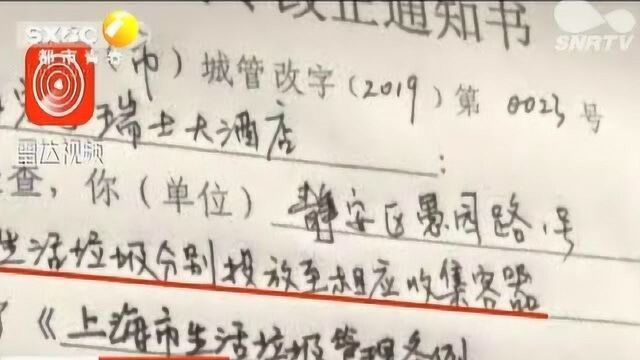 SXBC
都市青春
SNRTV
雷达视频
改正通知书
市）城管改字（2019）第 0023 号
瑞士大酒店：
查，你（单位）静安区愚园路1号
生活垃圾分别投放至相应收集容器
《上海市生活垃圾管理条例